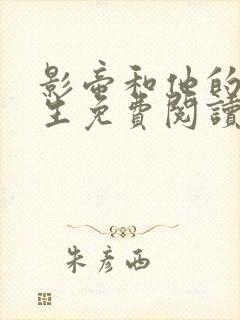 影帝和他的
生免費閱讀
朱彥西